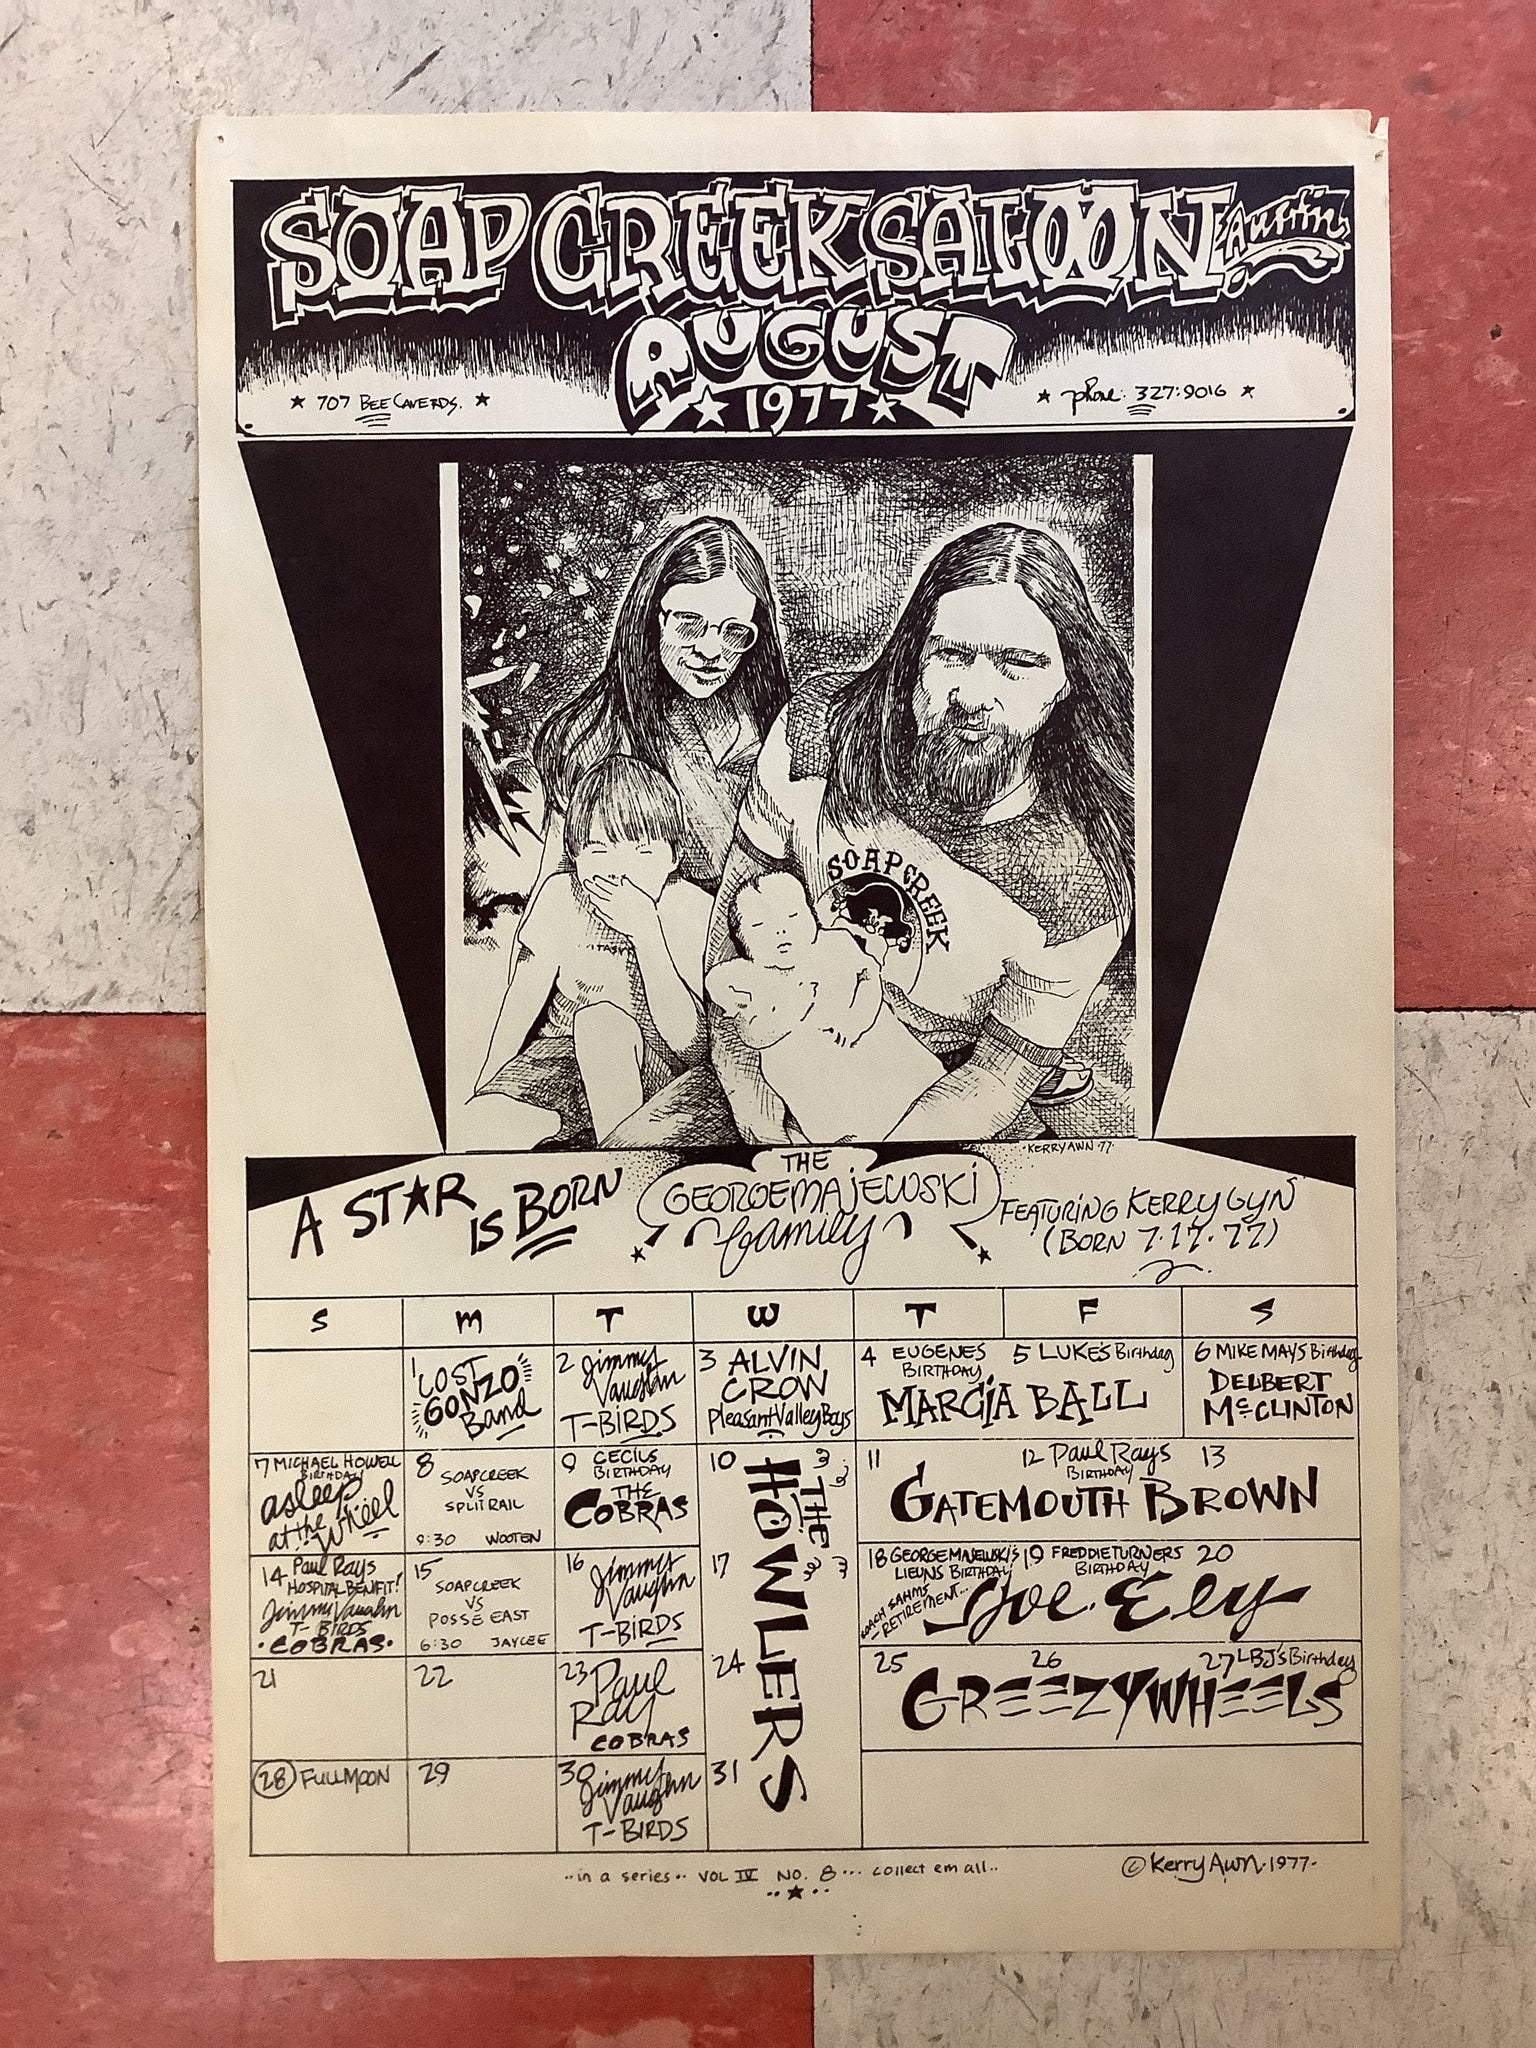 SOAP CREEK SALOON Austin
AUGUST
1977
707 BEE CAVE RDS.
phone: 327:9016
SOAP CREEK
KERRY AWN ·77·
A STAR IS BORN
THE
GEORGE MAJEWSKI
family
FEATURING KERRY GYN
(BORN 7·17·77)
S M T W T F S
1 LOST
GONZO
Band
2 Jimmy
Vaughn
T-BIRDS
3 ALVIN
CROW
Pleasant Valley Boys
4 EUGENES
BIRTHDAY
5 LUKE'S Birthday
MARCIA BALL
6 MIKE MAYS Birthday
DELBERT
McCLINTON
7 MICHAEL HOWELL
BIRTHDAY
asleep
at the
Wheel
8 SOAPCREEK
VS
SPLIT RAIL
9:30 WOOTEN
9 CECILS
BIRTHDAY
THE
COBRAS
10
THE
HOWLERS
11
12 Paul Rays
BIRTHDAY
13
GATEMOUTH BROWN
14 Paul Rays
HOSPITAL BENIFIT!
Jimmy Vaughn
T-BIRDS
·COBRAS·
15 SOAPCREEK
VS
POSSE EAST
6:30 JAYCEE
16 Jimmy
Vaughn
T-BIRDS
17
18 GEORGE MAJEWSKI'S
BIRTHDAY
COACH SAHMS
RETIREMENT...
19 FREDDIE TURNERS
BIRTHDAY
20
Joe Ely
21
22
23 Paul
Ray
COBRAS
24
25
26
27 LBJ'S Birthday
GREEZY WHEELS
28 FULL MOON
29
30 Jimmy
Vaughn
T-BIRDS
31
..in a series.. VOL IV NO. 8... collect em all..
© Kerry Awn·1977·